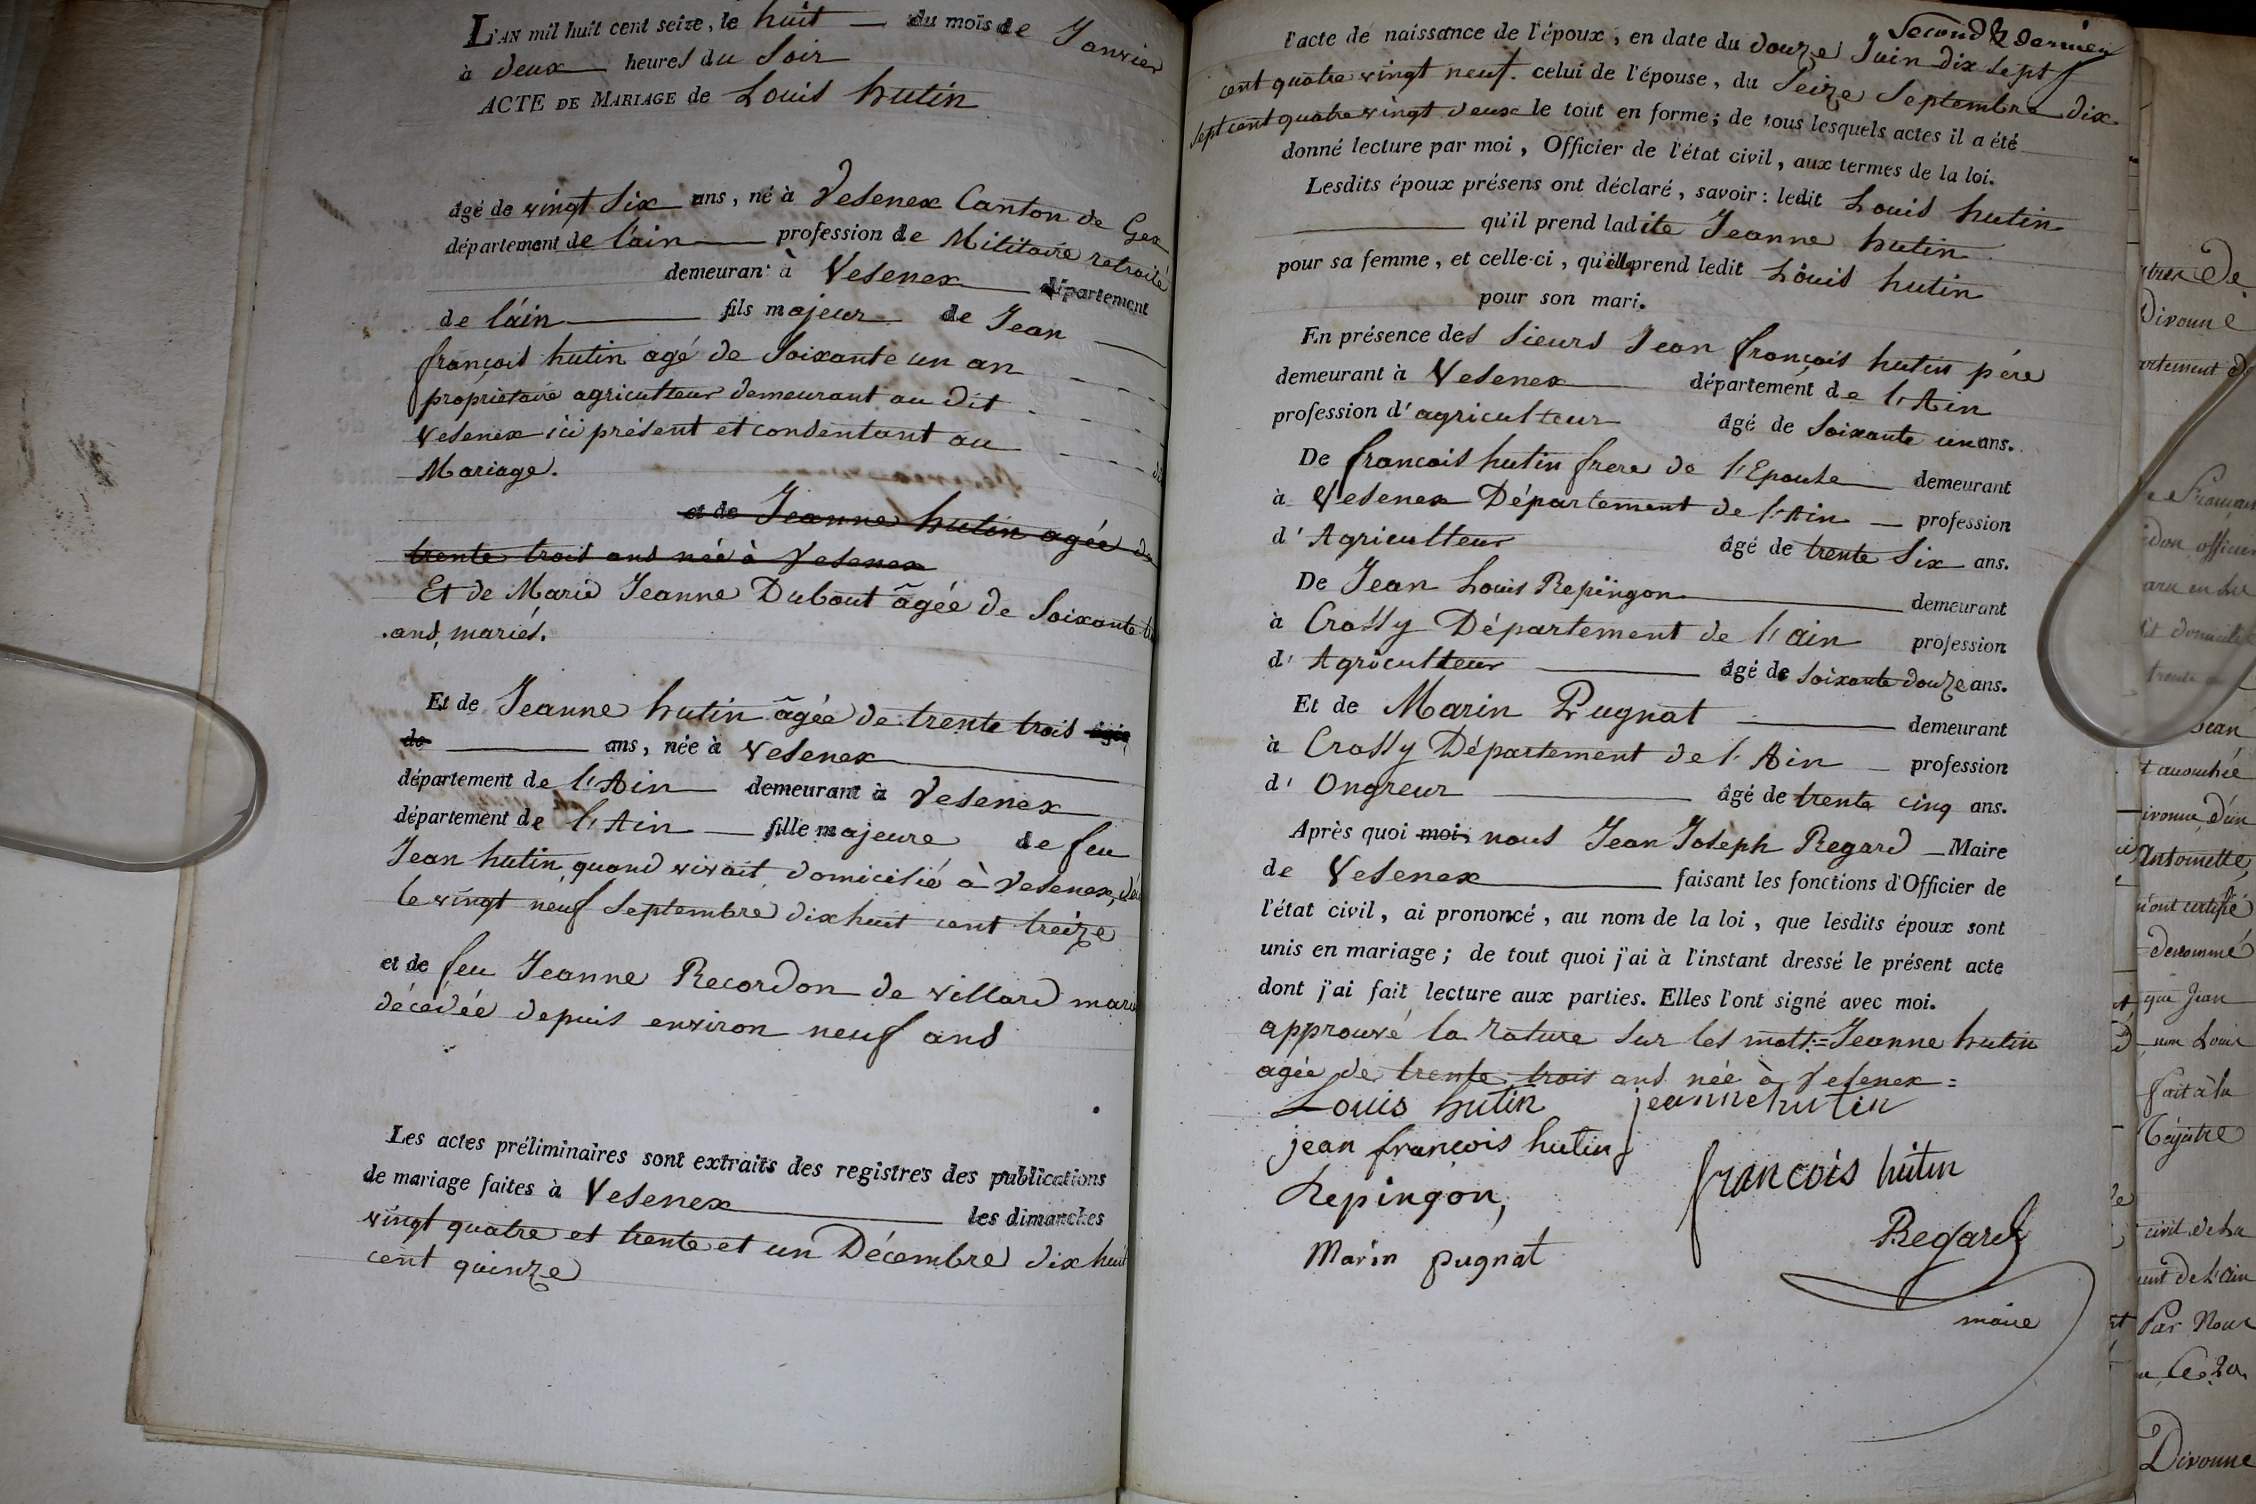 L'AN mil huit cent seize, le huit — du mois de Janvier
à deux heures du Soir
ACTE DE MARIAGE de Louis hutin
âgé de vingt Six ans, né à Vesenex Canton de Gex
département de l'ain profession de Militaire retraité
demeurant à Vesenex département
de l'ain fils majeur de Jean
françois hutin agé de Soixante un an
propriétaire agriculteur demeurant au dit
Vesenex ici présent et consentant au
Mariage.
et de Jeanne hutin agée de
trente trois ans née à Vesenex
Et de Marie Jeanne Dubout âgée de Soixante
ans, mariés.
Et de Jeanne hutin âgée de trente trois agée
de ans, née à Vesenex
département de l'Ain demeurant à Vesenex
département de l'Ain fille majeure de feu
Jean hutin, quand vivait domicilié à Vesenex,
le vingt neuf Septembre dix huit cent treize
et de feu Jeanne Recordon de villard
décédée depuis environ neuf ans
Les actes préliminaires sont extraits des registres des publications
de mariage faites à Vesenex les dimanches
vingt quatre et trente et un Décembre dix huit
cent quinze
Second & dernier
l'acte de naissance de l'époux, en date du douze Juin dix Sept
cent quatre vingt neuf. celui de l'épouse, du Seize Septembre dix
Sept cent quatre vingt deux le tout en forme; de tous lesquels actes il a été
donné lecture par moi, Officier de l'état civil, aux termes de la loi.
Lesdits époux présens ont déclaré, savoir: ledit Louis hutin
qu'il prend ladite Jeanne hutin
pour sa femme, et celle-ci, qu'elle prend ledit Louis hutin
pour son mari.
En présence des Sieurs Jean françois hutin père
demeurant à Vesenex département de l'Ain
profession d'agriculteur âgé de Soixante un ans.
De francois hutin frere de l'Epouse demeurant
à Vesenex Département de l'Ain — profession
d'Agriculteur âgé de trente Six ans.
De Jean Louis Repingon demeurant
à Crassy Département de l'ain profession
d'Agriculteur âgé de Soixante douze ans.
Et de Marin Pugnat demeurant
à Crassy Département de l'Ain — profession
d'Ongreur âgé de trente cinq ans.
Après quoi moi, nous Jean Joseph Regard — Maire
de Vesenex faisant les fonctions d'Officier de
l'état civil, ai prononcé, au nom de la loi, que lesdits époux sont
unis en mariage; de tout quoi j'ai à l'instant dressé le présent acte
dont j'ai fait lecture aux parties. Elles l'ont signé avec moi.
approuvé la rature Sur les mots = Jeanne hutin
agée de trente trois ans née à Vesenex =
Louis hutin jeanne hutin
jean françois hutin
francois hutin
Repingon,
Regard
Marin pugnat
maire
Divonne
Antoinette,
dénommé
que Jean
non Louis
fait à la
civil de la
Par Nous
Divonne